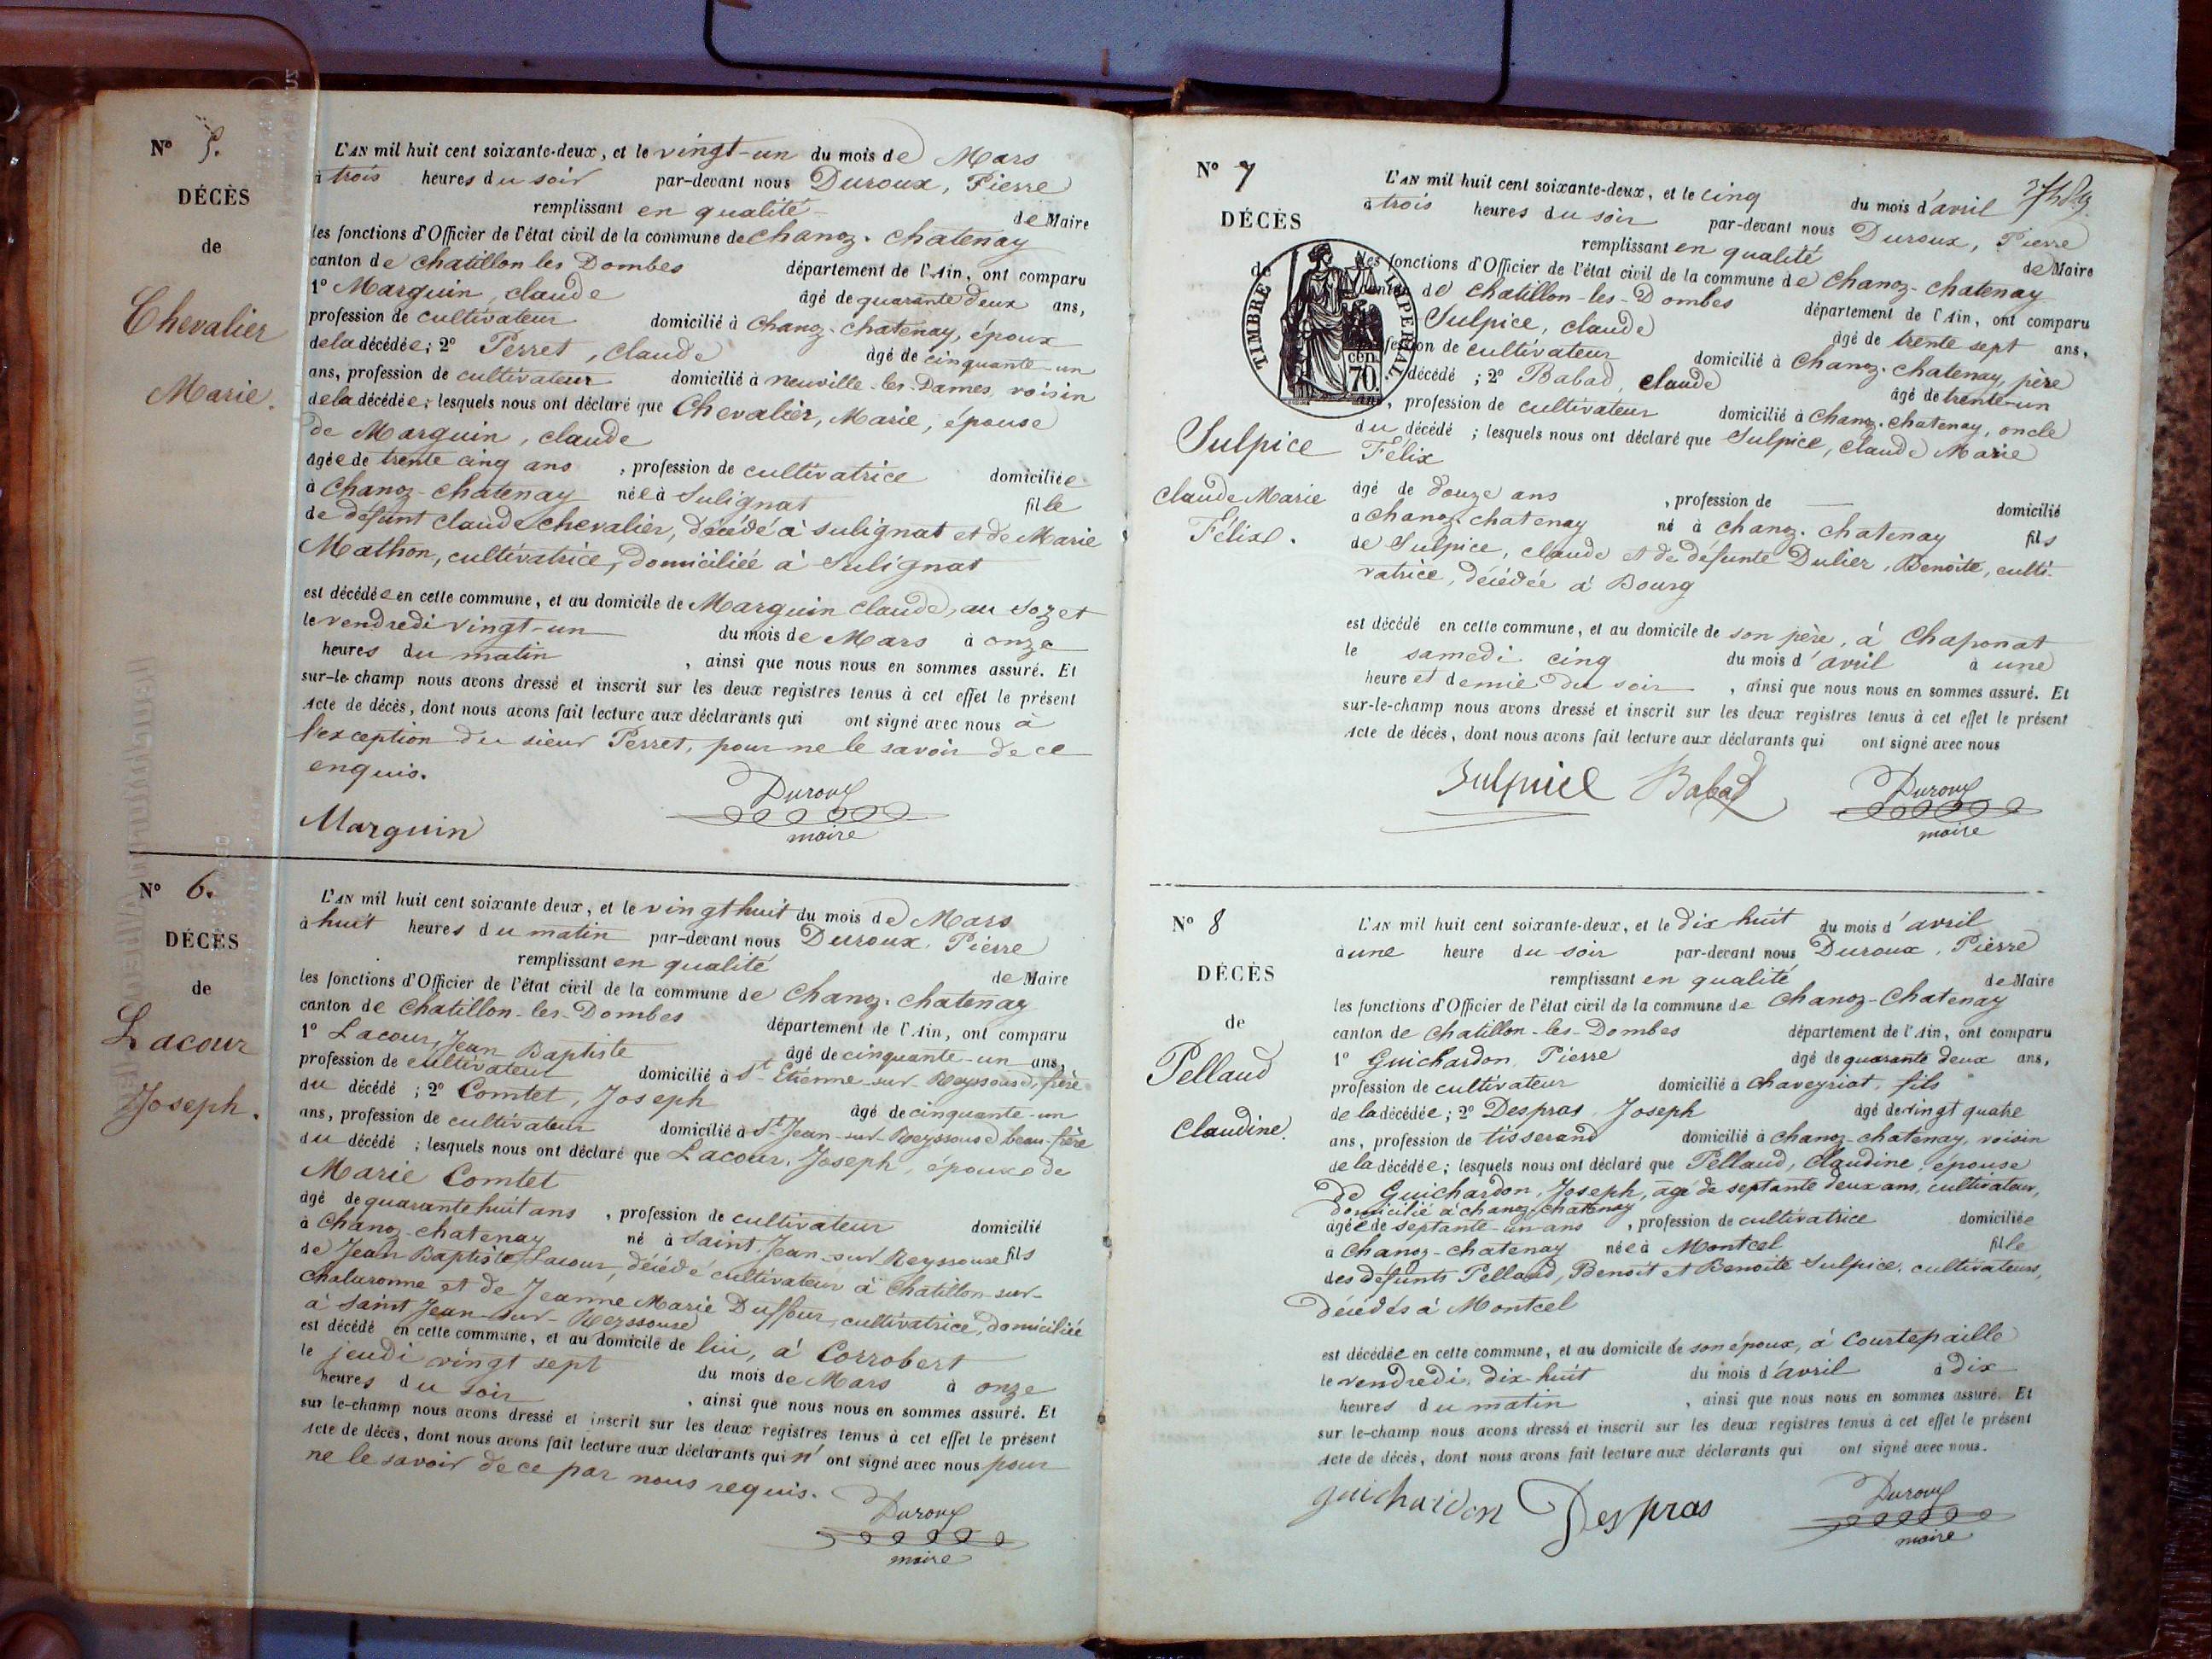 N° 5.
DÉCÈS
de
Chevalier
Marie.
L'AN mil huit cent soixante-deux, et le vingt-un du mois de Mars
à trois heures du soir par-devant nous Duroux, Pierre
remplissant en qualité de Maire
les fonctions d'Officier de l'état civil de la commune de Chanoz-Chatenay
canton de Chatillon les Dombes département de l'Ain, ont comparu
1° Marguin, claude âgé de quarante deux ans,
profession de cultivateur domicilié à Chanoz-Chatenay, époux
de la décédée; 2° Perret, Claude âgé de cinquante-un
ans, profession de cultivateur domicilié à neuville-les-Dames, voisin
de la décédée; lesquels nous ont déclaré que Chevalier, Marie, épouse
de Marguin, claude
âgée de trente cinq ans, profession de cultivatrice domiciliée
à Chanoz-Chatenay née à Sulignat fille
de défunt claude chevalier, décédé à sulignat et de Marie
Mathon, cultivatrice, domiciliée à Sulignat
est décédée en cette commune, et au domicile de Marguin claude, au Sozet
le vendredi vingt-un du mois de Mars à onze
heures du matin, ainsi que nous nous en sommes assuré. Et
sur-le-champ nous avons dressé et inscrit sur les deux registres tenus à cet effet le présent
Acte de décès, dont nous avons fait lecture aux déclarants qui ont signé avec nous à
l'exception du sieur Perret, pour ne le savoir de ce
enquis.
Duroux
Marguin
maire
N° 6.
DÉCÈS
de
Lacour
Joseph.
L'AN mil huit cent soixante deux, et le vingt huit du mois de Mars
à huit heures du matin par-devant nous Duroux, Pierre
remplissant en qualité de Maire
les fonctions d'Officier de l'état civil de la commune de Chanoz-Chatenay
canton de Chatillon-les-Dombes département de l'Ain, ont comparu
1° Lacour, Jean Baptiste âgé de cinquante-un ans,
profession de cultivateur domicilié à St Etienne-sur-Reyssouse, frère
du décédé; 2° Comtet, Joseph âgé de cinquante-un
ans, profession de cultivateur domicilié à St Jean-sur-Reyssouse beau-frère
du décédé; lesquels nous ont déclaré que Lacour, Joseph, époux de
Marie Comtet
âgé de quarante huit ans, profession de cultivateur domicilié
à Chanoz-chatenay né à Saint Jean-sur-Reyssouse fils
de Jean Baptiste Lacour, décédé cultivateur à Chatillon-sur-
Chalaronne et de Jeanne Marie Duffour, cultivatrice, domiciliée
à Saint Jean-sur-Reyssouse
est décédé en cette commune, et au domicile de lui, à Corrobert
le jeudi vingt sept du mois de Mars à onze
heures du soir, ainsi que nous nous en sommes assuré. Et
sur le-champ nous avons dressé et inscrit sur les deux registres tenus à cet effet le présent
Acte de décès, dont nous avons fait lecture aux déclarants qui n'ont signé avec nous pour
ne le savoir de ce par nous requis.
Duroux
maire
N° 7
DÉCÈS
de
TIMBRE IMPÉRIAL
70 cen.
Sulpice
Claude Marie
Félix.
L'AN mil huit cent soixante-deux, et le cinq du mois d'avril
à trois heures du soir par-devant nous Duroux, Pierre
remplissant en qualité de Maire
les fonctions d'Officier de l'état civil de la commune de Chanoz-Chatenay
canton de Chatillon-les-Dombes département de l'Ain, ont comparu
Sulpice, claude âgé de trente sept ans,
profession de cultivateur domicilié à Chanoz-Chatenay, père
décédé; 2° Babad, claude âgé de trente-un
ans, profession de cultivateur domicilié à Chanoz-Chatenay, oncle
du décédé; lesquels nous ont déclaré que Sulpice, Claude Marie
Félix
âgé de douze ans, profession de — domicilié
à Chanoz-Chatenay né à Chanoz-Chatenay fils
de Sulpice, claude et de défunte Dulier, Benoite, culti-
vatrice, décédée à Bourg
est décédé en cette commune, et au domicile de son père, à Chaponat
le samedi cinq du mois d'avril à une
heure et demie du soir, ainsi que nous nous en sommes assuré. Et
sur-le-champ nous avons dressé et inscrit sur les deux registres tenus à cet effet le présent
Acte de décès, dont nous avons fait lecture aux déclarants qui ont signé avec nous
Sulpice Babad Duroux
maire
N° 8
DÉCÈS
de
Pellaud
Claudine.
L'AN mil huit cent soixante-deux, et le dix huit du mois d'avril
à une heure du soir par-devant nous Duroux, Pierre
remplissant en qualité de Maire
les fonctions d'Officier de l'état civil de la commune de Chanoz-Chatenay
canton de Chatillon-les-Dombes département de l'Ain, ont comparu
1° Guichardon, Pierre âgé de quarante deux ans,
profession de cultivateur domicilié à Chaveyriat, fils
de la décédée; 2° Despras, Joseph âgé de vingt quatre
ans, profession de tisserand domicilié à Chanoz-chatenay, voisin
de la décédée; lesquels nous ont déclaré que Pellaud, Claudine, épouse
de Guichardon, Joseph, âgé de septante deux ans, cultivateur,
domicilié à chanoz-chatenay
âgée de septante-un ans, profession de cultivatrice domiciliée
à Chanoz-chatenay née à Montcel fille
des défunts Pellaud, Benoit et Benoite Sulpice, cultivateurs,
décédés à Montcel
est décédée en cette commune, et au domicile de son époux, à Courtepaille
le vendredi, dix-huit du mois d'avril à dix
heures du matin, ainsi que nous nous en sommes assuré. Et
sur le-champ nous avons dressé et inscrit sur les deux registres tenus à cet effet le présent
Acte de décès, dont nous avons fait lecture aux déclarants qui ont signé avec nous.
guichardon Despras Duroux
maire